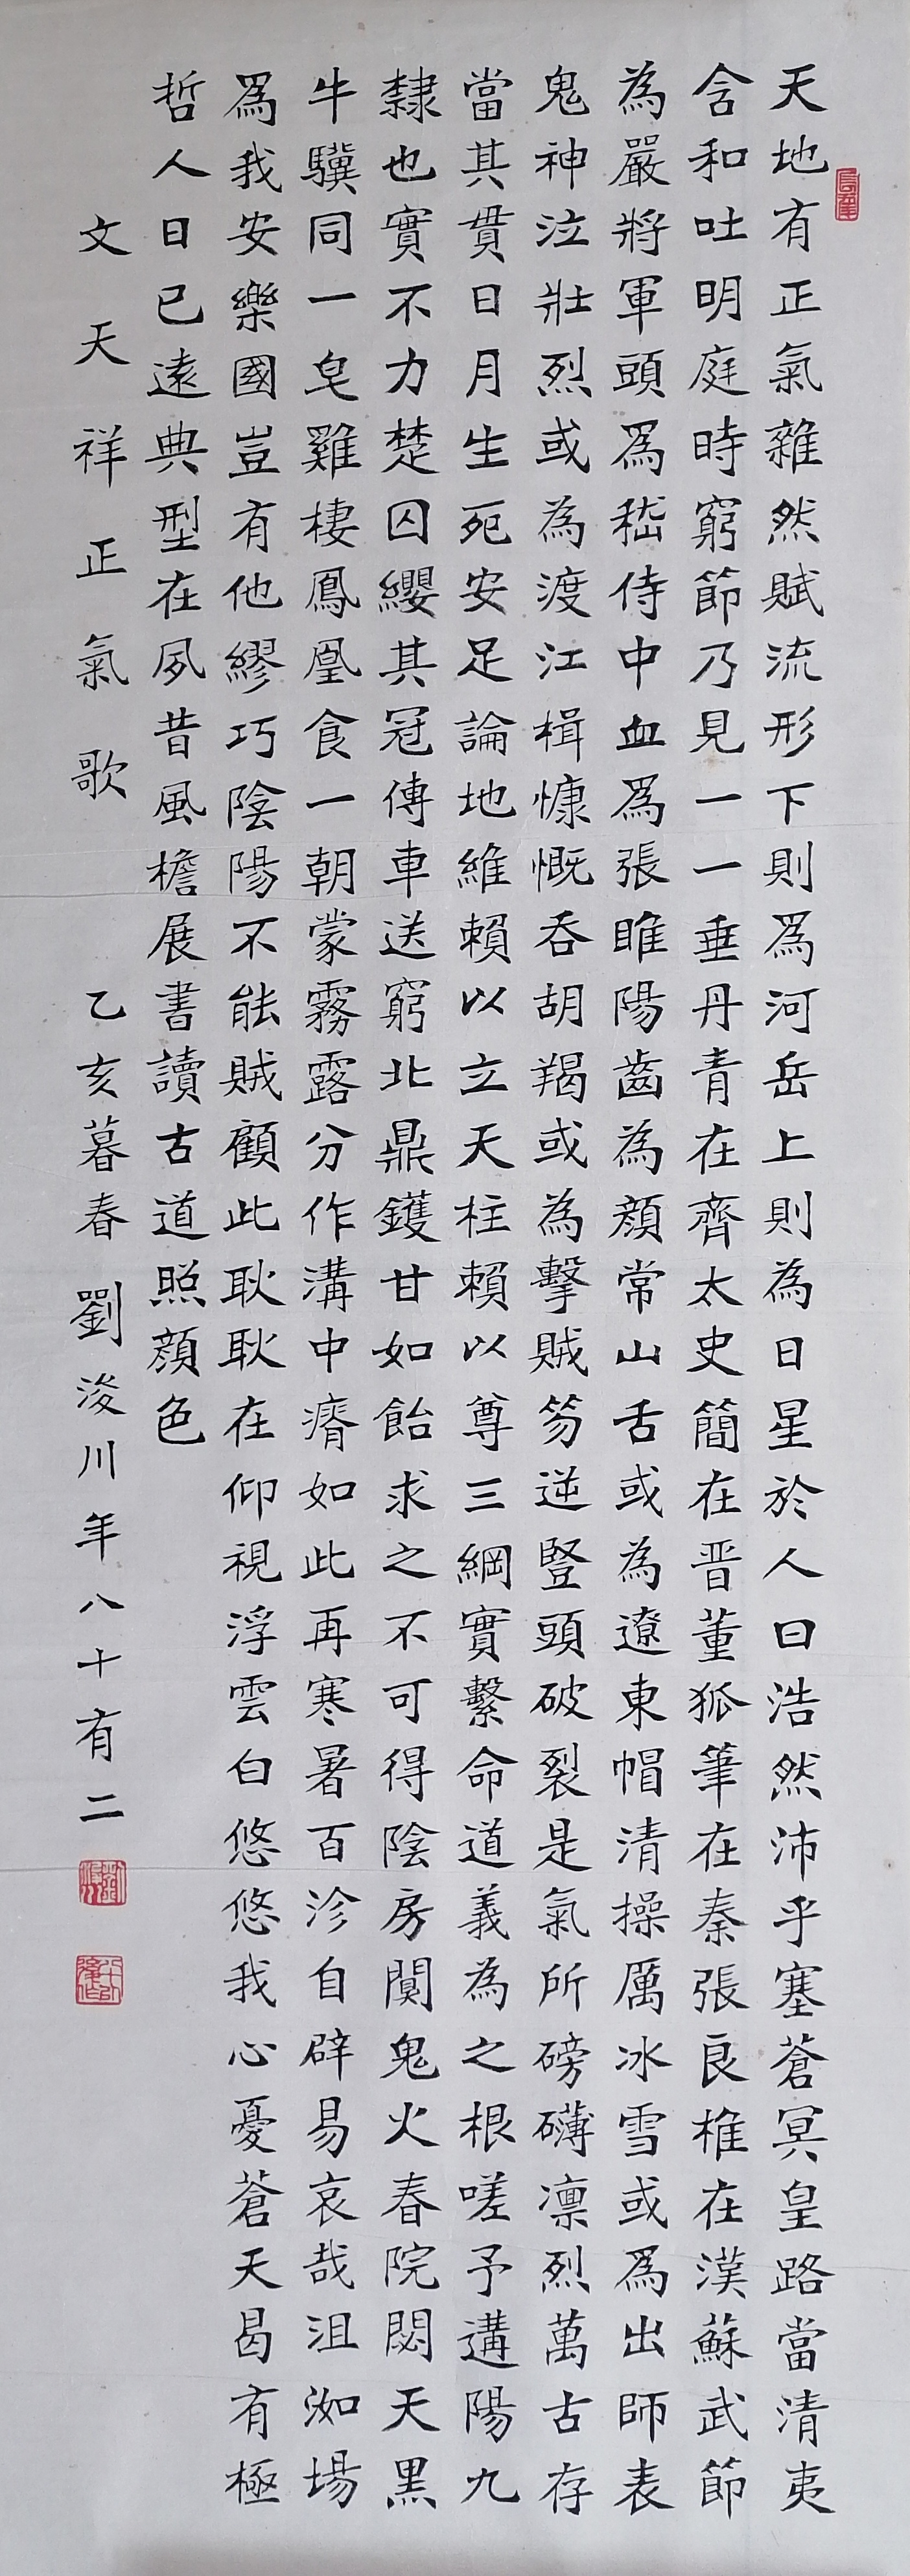 天地有正氣雜然賦流形下則爲河岳上則為日星於人曰浩然沛乎塞蒼冥皇路當清夷
含和吐明庭時窮節乃見一一垂丹青在齊太史簡在晋董狐筆在秦張良椎在漢蘇武節
為嚴將軍頭爲嵇侍中血爲張睢陽齒為顏常山舌或為遼東帽清操厲冰雪或爲出師表
鬼神泣壯烈或為渡江楫慷慨吞胡羯或為擊賊笏逆豎頭破裂是氣所磅礴凛烈萬古存
當其貫日月生死安足論地維賴以立天柱賴以尊三綱實繫命道義為之根嗟予遘陽九
隸也實不力楚囚纓其冠傳車送窮北鼎鑊甘如飴求之不可得陰房闃鬼火春院閟天黑
牛驥同一皂雞棲鳳凰食一朝蒙霧露分作溝中瘠如此再寒暑百沴自辟易哀哉沮洳場
爲我安樂國豈有他繆巧陰陽不能賊顧此耿耿在仰視浮雲白悠悠我心憂蒼天曷有極
哲人日已遠典型在夙昔風檐展書讀古道照顏色
文天祥正氣歌 乙亥暮春 劉浚川年八十有二